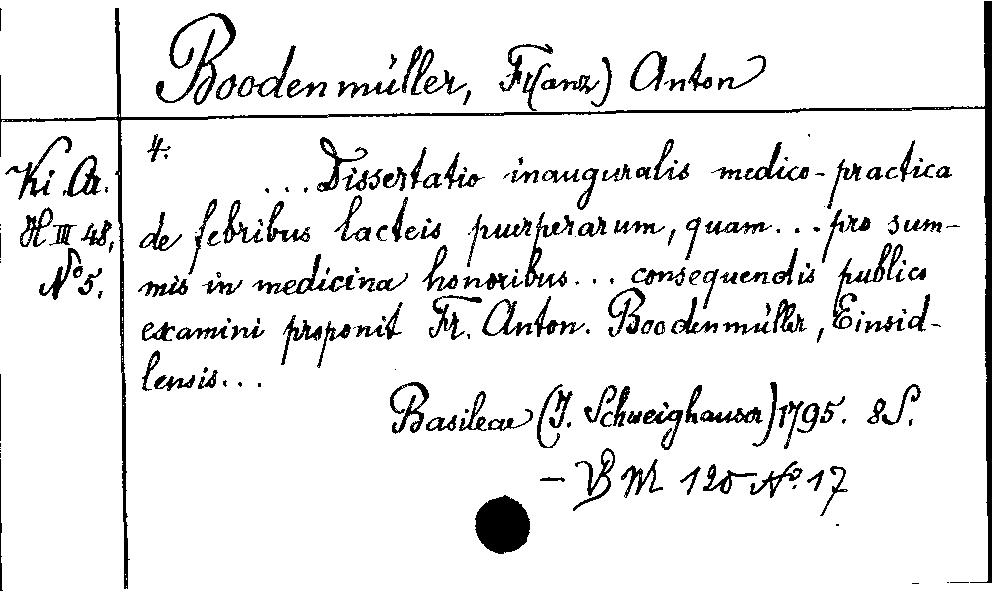 Boodenmüller, Fr(anz) Anton
Ki. Ar.
H III 48,
No 5.
4.
...Dissertatio inauguralis medico-practica
de febribus lacteis puerperarum, quam...pro sum-
mis in medicina honoribus... consequendis publico
examini proponit Fr. Anton. Boodenmüller, Einsid-
lensis...
Basileae (J. Schweighauser) 1795. 8 S.
– BM 120 No. 17